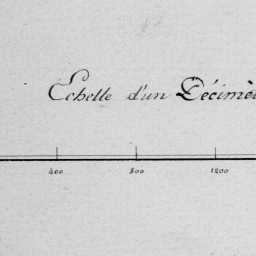 Echelle d'un Décimè
400 800 1200